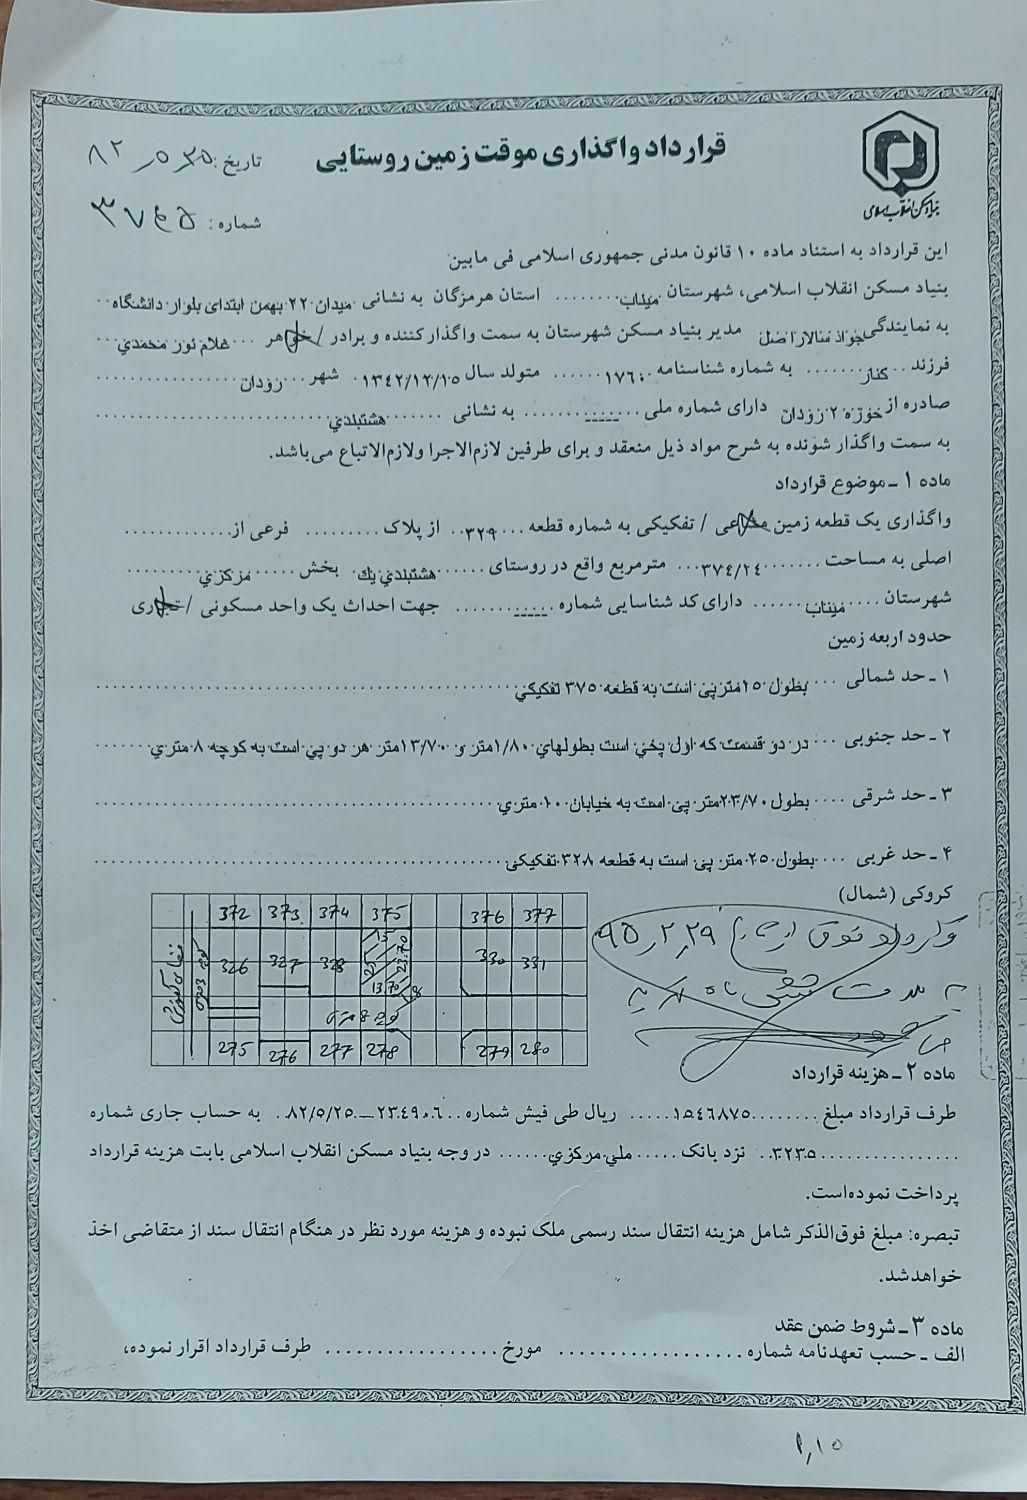 قرارداد واگذاری موقت زمین روستایی
بنیاد مسکن انقلاب اسلامی
تاریخ:
شماره: ۳۷۴۵
این قرارداد به استناد ماده ۱۰ قانون مدنی جمهوری اسلامی فی مابین
بنیاد مسکن انقلاب اسلامی، شهرستان میناب استان هرمزگان به نشانی میدان ۲۲ بهمن ابتدای بلوار دانشگاه
به نمایندگی جواد سالار اصل مدیر بنیاد مسکن شهرستان به سمت واگذارکننده و برادر / خواهر غلام نور محمدي
فرزند کنار به شماره شناسنامه ۱۷۶۰ متولد سال ۱۳۴۲/۱۲/۱۵ شهر رودان
صادره از حوزه ۲ رودان دارای شماره ملی ----- به نشانی هشتبلدي
به سمت واگذار شونده به شرح مواد ذیل منعقد و برای طرفین لازم‌الاجرا ولازم‌الاتباع می‌باشد.
ماده ۱ ـ موضوع قرارداد
واگذاری یک قطعه زمین / تفکیکی به شماره قطعه ۳۲۹ از پلاک ......... فرعی از .............
اصلی به مساحت ۳۷٤/۲٤ مترمربع واقع در روستای هشتبلدي يك بخش مرکزي
شهرستان میناب دارای کد شناسایی شماره ----- جهت احداث یک واحد مسکونی / تجاری
حدود اربعه زمین
۱ ـ حد شمالی بطول ۱۵متر پی است به قطعه ۳۷۵ تفکیکي
۲ ـ حد جنوبی در دو قسمت که اول پخي است بطولهاي ۱/۸۰متر و ۱۳/۷۰متر هر دو پي است به کوچه ۸ متري
۳ ـ حد شرقی بطول ۲۳/۷۰متر پی است به خیابان ۱۰ متري
۴ ـ حد غربی بطول ۲۵ متر پی است به قطعه ۳۲۸ تفکیکی
کروکی (شمال)
372 373 374 375 376 377
326 327 328 330 331
15
25 23.70
13.70
275 276 277 278 279 280
قرارداد فوق از تاریخ ۹۵,۲,۲۹
به مدت شش ماه
ماده ۲ ـ هزینه قرارداد
طرف قرارداد مبلغ ۱۵٤٦۸۷۵ ریال طی فیش شماره ۲۳٤۹۰٦ ـ ۸۲/۵/۲۵ به حساب جاری شماره
۳۲۳۵ نزد بانک ملي مرکزي در وجه بنیاد مسکن انقلاب اسلامی بابت هزینه قرارداد
پرداخت نموده‌است.
تبصره: مبلغ فوق‌الذکر شامل هزینه انتقال سند رسمی ملک نبوده و هزینه مورد نظر در هنگام انتقال سند از متقاضی اخذ
خواهدشد.
ماده ۳ ـ شروط ضمن عقد
الف ـ حسب تعهدنامه شماره .................. مورخ ................. طرف قرارداد اقرار نموده،